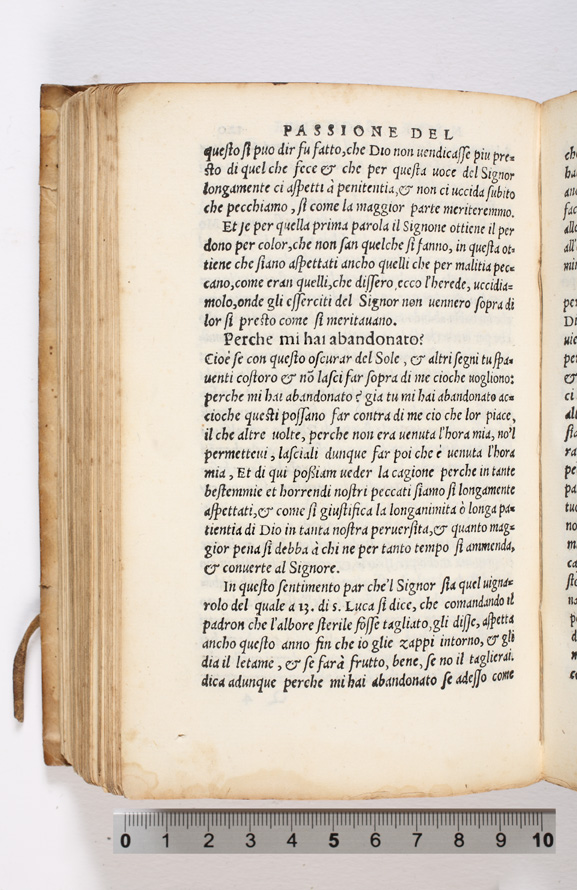 PASSIONE DEL
questo si puo dir fu fatto,che Dio non uendicasse piu pre=
sto di quel che fece & che per questa uoce del Signor
longamente ci aspetti à penitentia,& non ci uccida subito
che pecchiamo , si come la maggior parte meriteremmo.
Et se per quella prima parola il Signone ottiene il per
dono per color,che non san quelche si fanno, in questa ot=
tiene che siano aspettati ancho quelli che per malitia pec=
cano,come eran quelli,che dissero,ecco l'herede, uccidia=
molo,onde gli esserciti del Signor non uennero sopra di
lor si presto come si meritauano.
Perche mi hai abandonato?
Cioè se con questo oscurar del Sole , & altri segni tu spa=
uenti costoro & nõ lasci far sopra di me cioche uogliono:
perche mi hai abandonato è gia tu mi hai abandonato ac=
cioche questi possano far contra di me cio che lor piace,
il che altre uolte, perche non era uenuta l'hora mia, no'l
permetteui , lasciali dunque far poi che è uenuta l'hora
mia , Et di qui possiam ueder la cagione perche in tante
bestemmie et horrendi nostri peccati siamo si longamente
aspettati,& come si giustifica la longanimita ò longa pa=
tientia di Dio in tanta nostra peruersita,& quanto mag=
gior pena si debba à chi ne per tanto tempo si ammenda,
& conuerte al Signore.
In questo sentimento par che'l Signor sia quel uigna=
rolo del quale a 13. di s. Luca si dice, che comandando il
padron che l'albore sterile fosse tagliato,gli disse, aspetta
ancho questo anno fin che io glie zappi intorno, & gli
dia il letame , & se farà frutto, bene, se no il taglierai.
dica adunque perche mi hai abandonato se adesso come
0 1 2 3 4 5 6 7 8 9 10